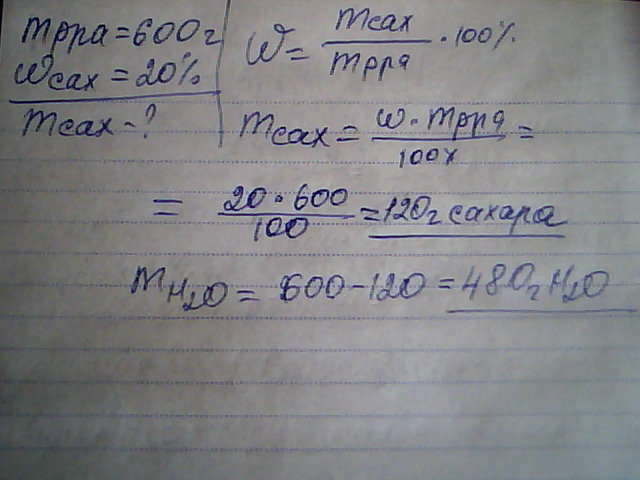 mрра = 600г
Wсах = 20%
mсах - ?
W = mсах / mрра · 100%
mсах = w · mрра / 100% =
= 20 · 600 / 100 = 120г сахара
mH₂O = 600 - 120 = 480г H₂O